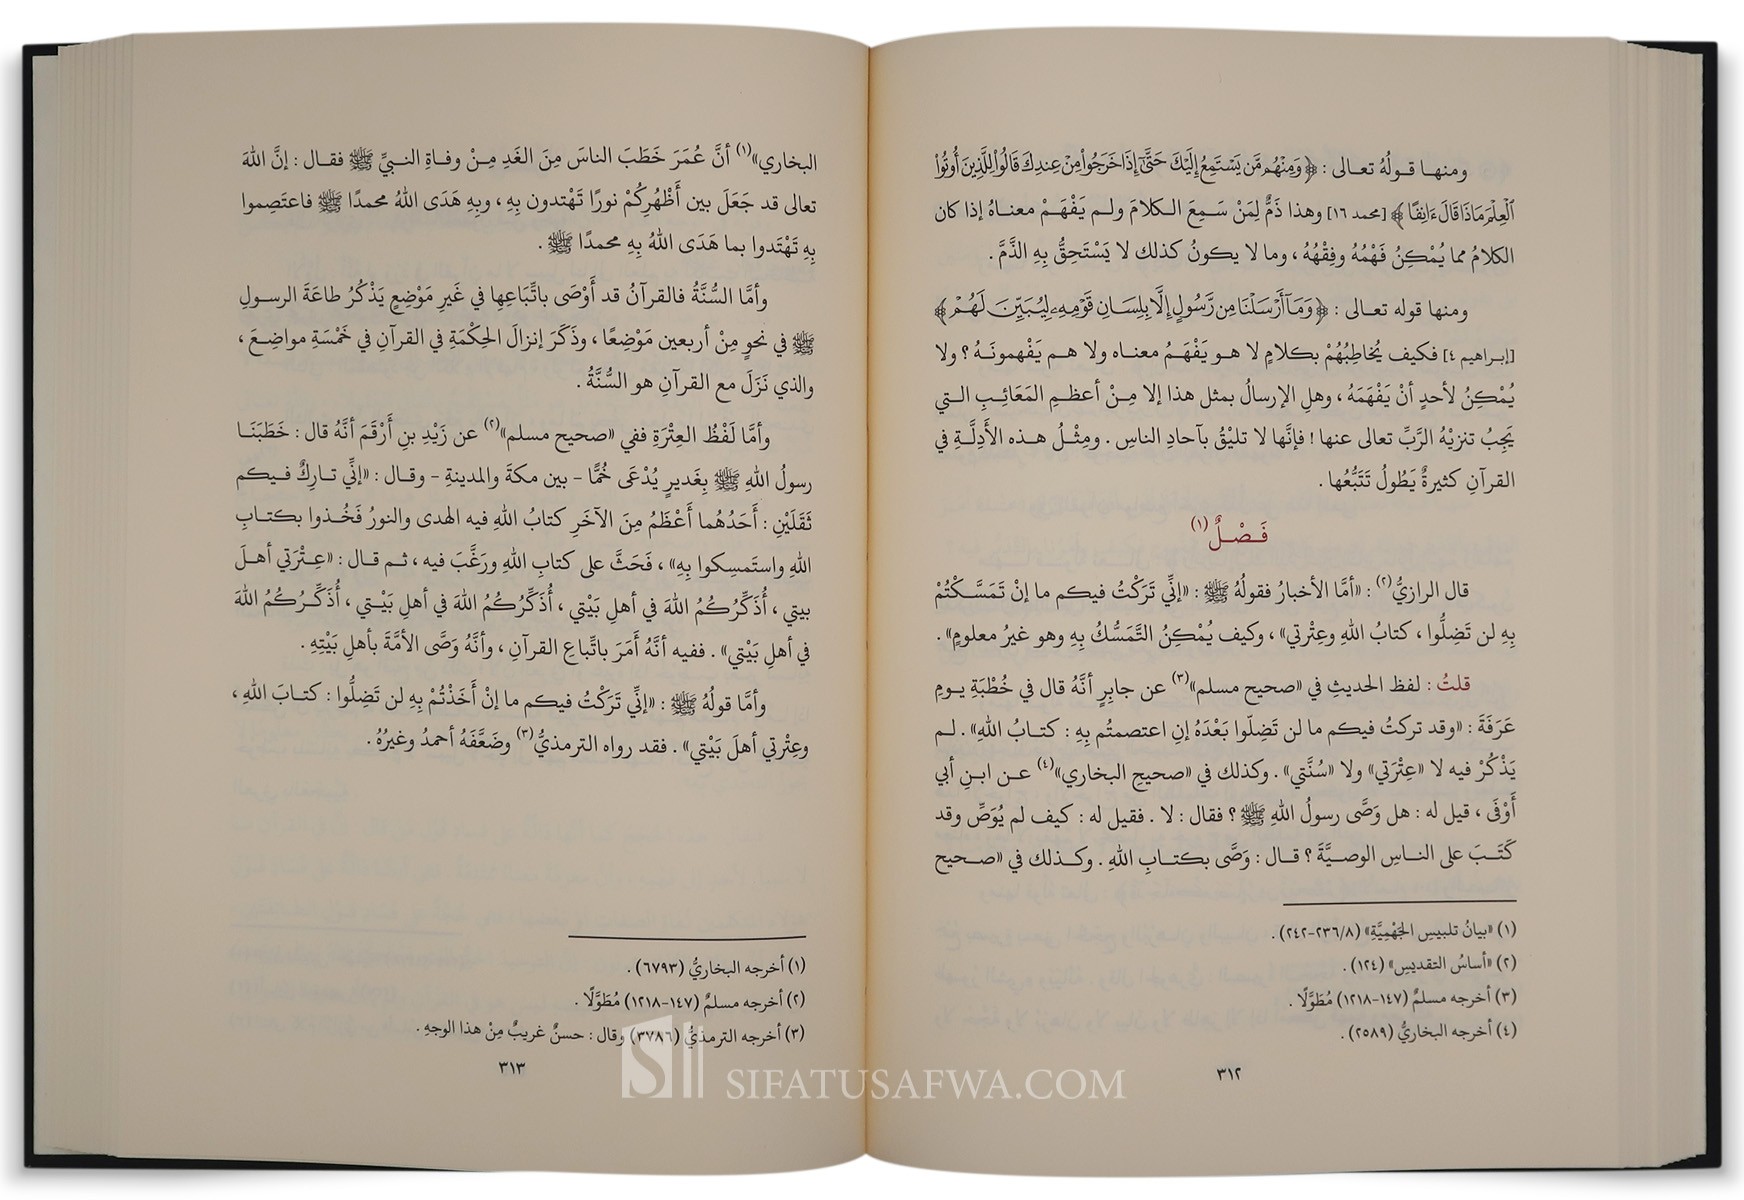 ومنها قولُهُ تعالى : ﴿وَمِنْهُم مَّن يَسْتَمِعُ إِلَيْكَ حَتَّىٰٓ إِذَا خَرَجُوا۟ مِنْ عِندِكَ قَالُوا۟ لِلَّذِينَ أُوتُوا۟
ٱلْعِلْمَ مَاذَا قَالَ ءَانِفًا﴾ [محمد ١٦] وهذا ذَمٌّ لِمَنْ سَمِعَ الكلامَ ولم يَفْهَمْ معناهُ إذا كان
الكلامُ مما يُمْكِنُ فَهْمُهُ وفِقْهُهُ ، وما لا يكونُ كذلك لا يَسْتَحِقُّ بِهِ الذَّمَّ .
ومنها قوله تعالى : ﴿وَمَآ أَرْسَلْنَا مِن رَّسُولٍ إِلَّا بِلِسَانِ قَوْمِهِۦ لِيُبَيِّنَ لَهُمْ﴾
[إبراهيم ٤] فكيف يُخاطِبُهُمْ بكلامٍ لا هو يَفْهَمُ معناه ولا هم يَفْهمونَهُ ؟ ولا
يُمْكِنُ لأحدٍ أنْ يَفْهَمَهُ ، وهلِ الإرسالُ بمثل هذا إلا مِنْ أعظمِ المَعَائِبِ التي
يَجِبُ تنزيْهُ الرَّبِّ تعالى عنها ! فإنَّها لا تليْقُ بآحادِ الناسِ . ومِثْلُ هذه الأَدِلَّةِ في
القرآنِ كثيرةٌ يَطُولُ تَتَبُّعُها .
فَـصْـلٌ (١)
قال الرازيُّ(٢) : «أمَّا الأخبارُ فقولُهُ ﷺ : «إنِّي تَرَكْتُ فيكم ما إنْ تَمَسَّكْتُمْ
بِهِ لن تَضِلُّوا ، كتابُ اللهِ وعِتْرتي» ، وكيف يُمْكِنُ التَّمَسُّكُ بِهِ وهو غيرُ معلومٍ» .
قلتُ : لفظ الحديثِ في «صحيح مسلم»(٣) عن جابِرٍ أنَّهُ قال في خُطْبَةِ يومِ
عَرَفَةَ : «وقد تركتُ فيكم ما لن تَضِلَّوا بَعْدَهُ إنِ اعتصمتُم بِهِ : كتابُ اللهِ» . لم
يَذْكُرْ فيه لا «عِتْرَتي» ولا «سُنَّتي» . وكذلك في «صحيحِ البخاري»(٤) عن ابنِ أبي
أَوْفَى ، قيل له : هل وَصَّى رسولُ اللهِ ﷺ ؟ فقال : لا . فقيل له : كيف لم يُوَصِّ وقد
كَتَبَ على الناسِ الوصيَّةَ ؟ قال : وَصَّى بكتابِ اللهِ . وكذلك في «صحيح
(١) «بيانُ تلبيسِ الجَهْمِيَّةِ» (٨/٢٣٦-٢٤٢) .
(٢) «أساسُ التقديسِ» (١٢٤) .
(٣) أخرجه مسلمٌ (١٤٧-١٢١٨) مُطَوَّلًا .
(٤) أخرجه البخاريُّ (٢٥٨٩) .
٣١٢
البخاري»(١) أنَّ عُمَرَ خَطَبَ الناسَ مِنَ الغَدِ مِنْ وفاةِ النبيِّ ﷺ فقال : إنَّ اللهَ
تعالى قد جَعَلَ بين أَظْهُرِكُمْ نورًا تَهْتدون بِهِ ، وبِهِ هَدَى اللهُ محمدًا ﷺ فاعتَصِموا
بِهِ تَهْتَدوا بما هَدَى اللهُ بِهِ محمدًا ﷺ .
وأمَّا السُّنَّةُ فالقرآنُ قد أَوْصَى باتِّبَاعِها في غَيرِ مَوْضِعٍ يَذْكُرُ طاعَةَ الرسولِ
ﷺ في نحوٍ مِنْ أربعين مَوْضِعًا ، وذَكَرَ إنزالَ الحِكْمَةِ في القرآنِ في خَمْسَةِ مواضِعَ ،
والذي نَزَلَ مع القرآنِ هو السُّنَّةُ .
وأمَّا لَفْظُ العِتْرَةِ ففي «صحيح مسلم»(٢) عن زَيْدِ بنِ أَرْقَمَ أنَّهُ قال : خَطَبَنَا
رسولُ اللهِ ﷺ بِغَديرٍ يُدْعَى خُمًّا - بين مكةَ والمدينةِ - وقال : «إنِّي تارِكٌ فيكم
ثَقَلَيْنِ : أَحَدُهُما أَعْظَمُ مِنَ الآخَرِ كتابُ اللهِ فيه الهدى والنورُ فَخُذوا بكتابِ
اللهِ واستَمسِكوا بِهِ» ، فَحَثَّ على كتابِ اللهِ ورَغَّبَ فيه ، ثم قال : «عِتْرَتي أهلَ
بيتي ، أُذَكِّرُكُمُ اللهَ في أهلِ بَيْتي ، أُذَكِّرُكُمُ اللهَ في أهلِ بَيْتي ، أُذَكِّرُكُمُ اللهَ
في أهلِ بَيْتي» . ففيه أنَّهُ أَمَرَ باتِّباعِ القرآنِ ، وأنَّهُ وَصَّى الأمَّةَ بأهلِ بَيْتِهِ .
وأمَّا قولُهُ ﷺ : «إنِّي تَرَكْتُ فيكم ما إنْ أَخَذْتُمْ بِهِ لن تَضِلُّوا : كتابَ اللهِ ،
وعِتْرتي أهلَ بَيْتي» . فقد رواه الترمذيُّ(٣) وضَعَّفَهُ أحمدُ وغيرُهُ .
(١) أخرجه البخاريُّ (٦٧٩٣) .
(٢) أخرجه مسلمٌ (١٤٧-١٢١٨) مُطَوَّلًا .
(٣) أخرجه الترمذيُّ (٣٧٨٦) وقال : حسنٌ غريبٌ مِنْ هذا الوجهِ .
٣١٣
SIFATUSAFWA.COM